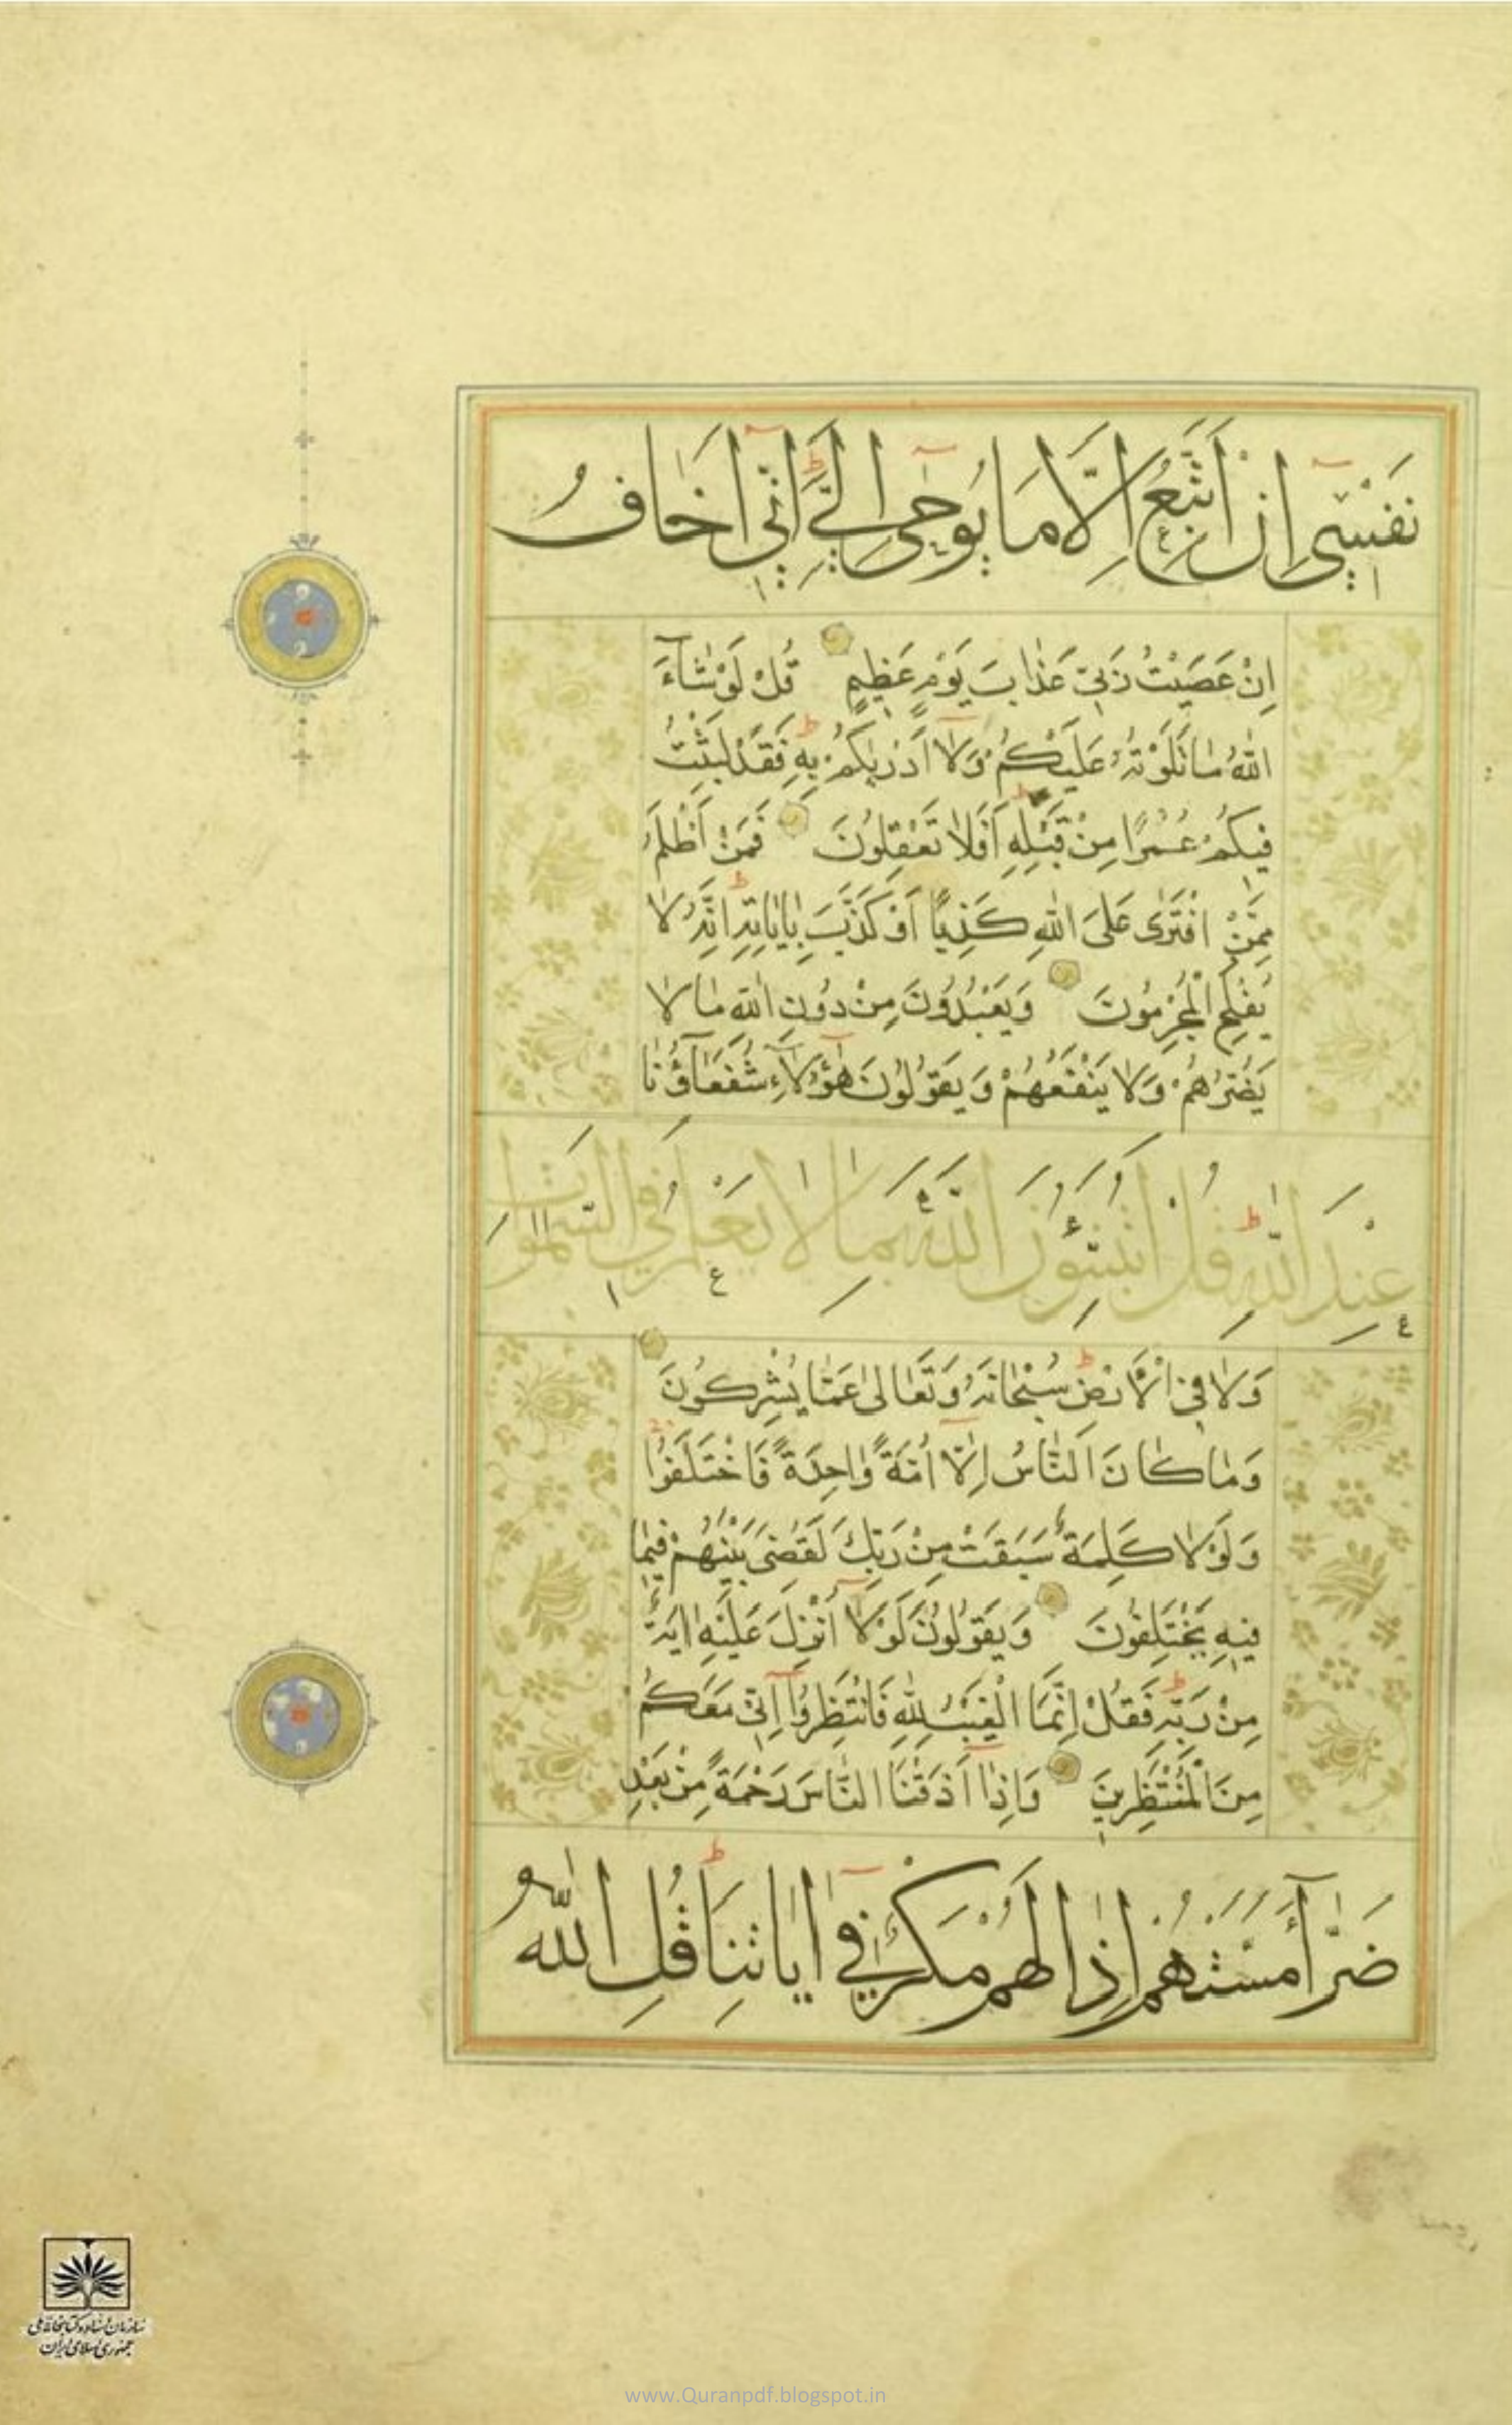 نَفْسِي إِنْ أَتَّبِعُ إِلَّا مَا يُوحَى إِلَيَّ إِنِّي أَخَافُ
اِنْ عَصَيْتُ رَبِّي عَذَابَ يَوْمٍ عَظِيمٍ قُلْ لَوْ شَاءَ
اللّٰهُ مَا تَلَوْتُهُ عَلَيْكُمْ وَلَا أَدْرٰيكُمْ بِهِ فَقَدْ لَبِثْتُ
فِيكُمْ عُمُرًا مِنْ قَبْلِهِ أَفَلَا تَعْقِلُونَ فَمَنْ أَظْلَمُ
مِمَّنْ افْتَرٰى عَلَى اللّٰهِ كَذِبًا أَوْ كَذَّبَ بِاٰيَاتِهِ اِنَّهُ لَا
يُفْلِحُ الْمُجْرِمُونَ وَيَعْبُدُونَ مِنْ دُونِ اللّٰهِ مَا لَا
يَضُرُّهُمْ وَلَا يَنْفَعُهُمْ وَيَقُولُونَ هٰؤُلَاءِ شُفَعَاؤُنَا
عِنْدَ اللّٰهِ قُلْ أَتُنَبِّئُونَ اللّٰهَ بِمَا لَا يَعْلَمُ فِي السَّمٰوَاتِ
وَلَا فِي الْأَرْضِ سُبْحَانَهُ وَتَعَالٰى عَمَّا يُشْرِكُونَ
وَمَا كَانَ النَّاسُ اِلَّا أُمَّةً وَاحِدَةً فَاخْتَلَفُوا
وَلَوْلَا كَلِمَةٌ سَبَقَتْ مِنْ رَبِّكَ لَقُضِيَ بَيْنَهُمْ فِيمَا
فِيهِ يَخْتَلِفُونَ وَيَقُولُونَ لَوْلَا أُنْزِلَ عَلَيْهِ اٰيَةٌ
مِنْ رَبِّهِ فَقُلْ اِنَّمَا الْغَيْبُ لِلّٰهِ فَانْتَظِرُوا اِنِّي مَعَكُمْ
مِنَ الْمُنْتَظِرِينَ وَاِذَا أَذَقْنَا النَّاسَ رَحْمَةً مِنْ بَعْدِ
ضَرَّاءَ مَسَّتْهُمْ اِذَا لَهُمْ مَكْرٌ فِي اٰيَاتِنَا قُلِ اللّٰهُ
سازمان اسناد و کتابخانه ملی
جمهوری اسلامی ایران
www.Quranpdf.blogspot.in